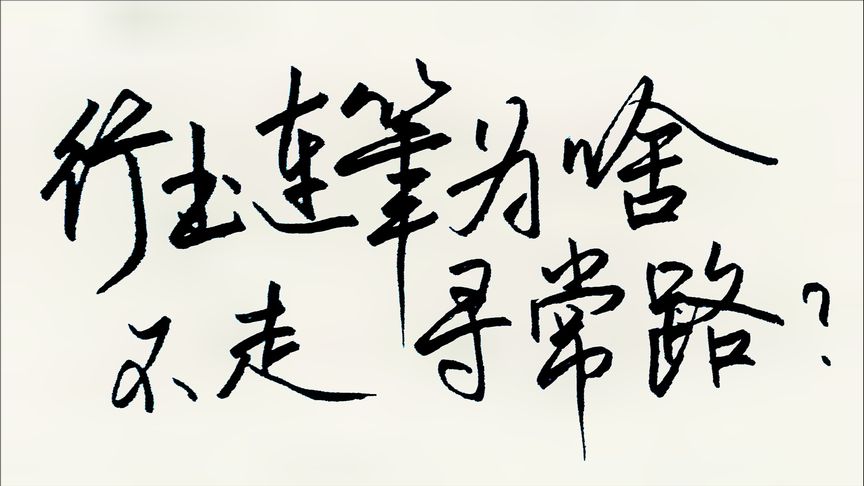 行书连筆为啥
不走寻常路？